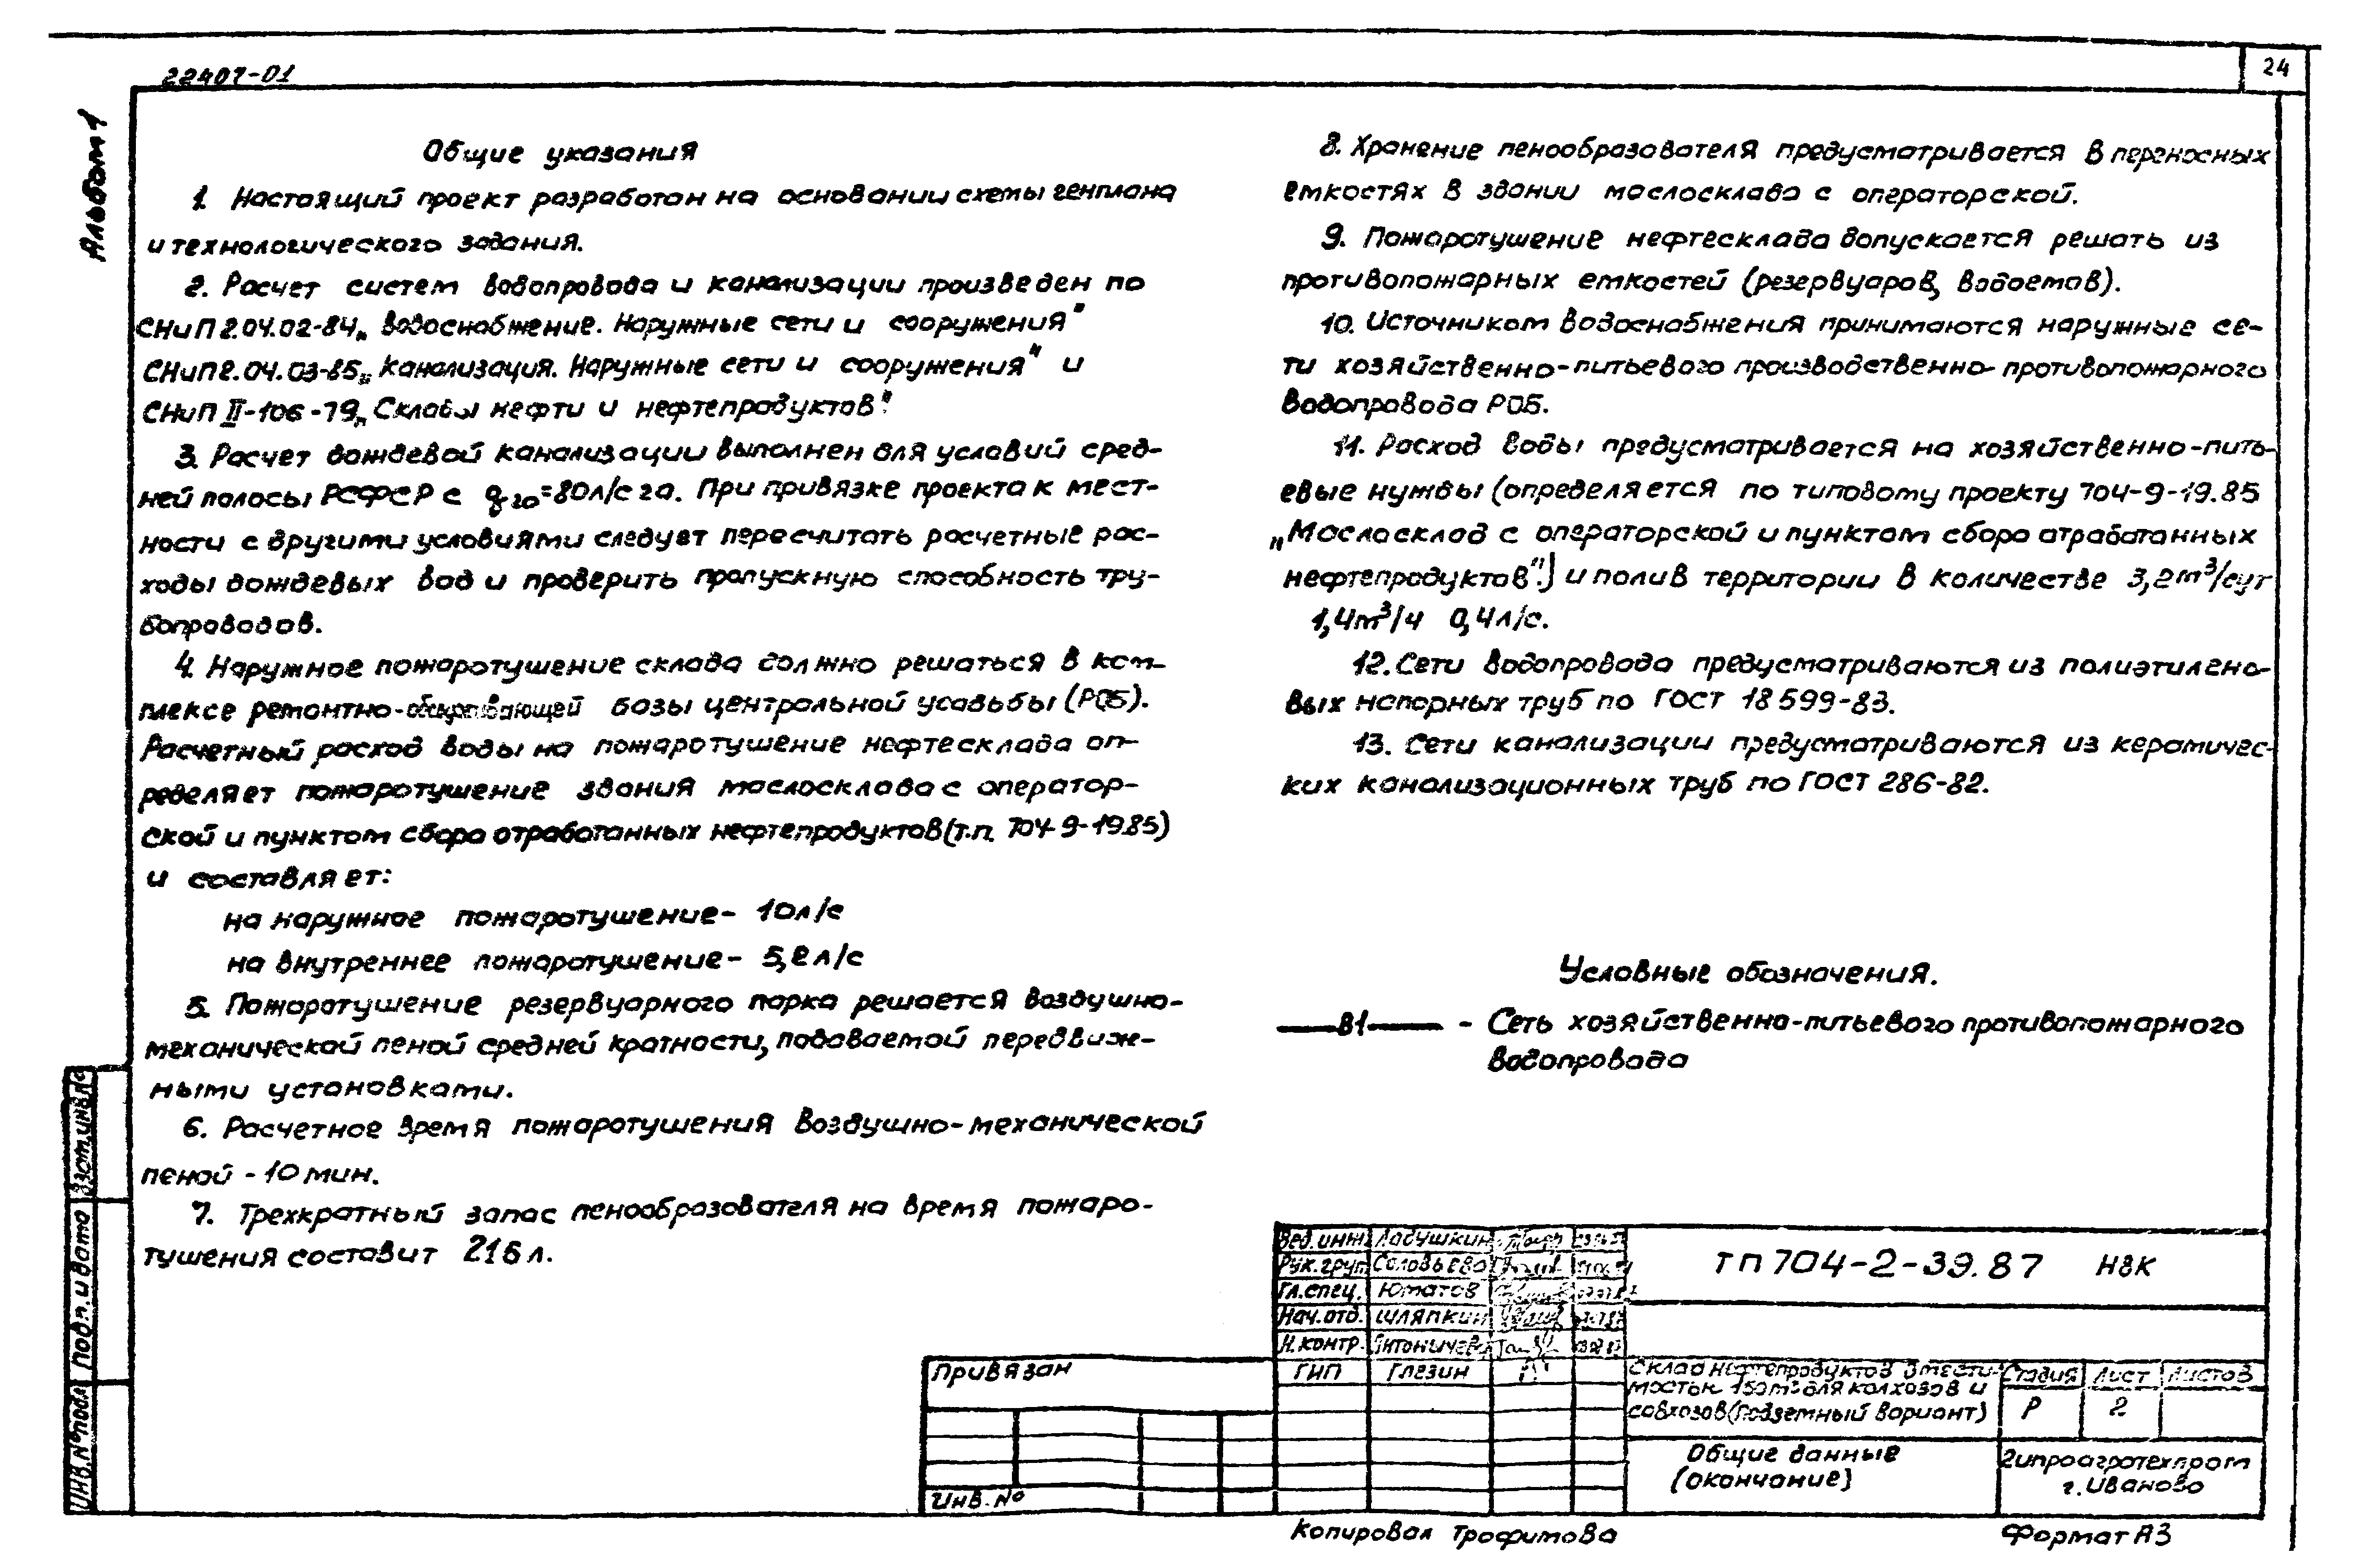 22407-01
24
Альбом 1
Общие указания
1. Настоящий проект разработан на основании схемы генплана
и технологического задания.
2. Расчет систем водопровода и канализации произведен по
СНиП 2.04.02-84 „Водоснабжение. Наружные сети и сооружения"
СНиП 2.04.03-85 „Канализация. Наружные сети и сооружения" и
СНиП II-106-79 „Склады нефти и нефтепродуктов".
3. Расчет дождевой канализации выполнен для условий сред-
ней полосы РСФСР с q20=80л/с га. При привязке проекта к мест-
ности с другими условиями следует пересчитать расчетные рас-
ходы дождевых вод и проверить пропускную способность тру-
бопроводов.
4. Наружное пожаротушение склада должно решаться в ком-
плексе ремонтно-обслуживающей базы центральной усадьбы (РОБ).
Расчетный расход воды на пожаротушение нефтесклада оп-
ределяет пожаротушение здания маслосклада с оператор-
ской и пунктом сбора отработанных нефтепродуктов (т.п. 704-9-19.85)
и составляет:
на наружное пожаротушение- 10л/с
на внутреннее пожаротушение- 5,2л/с
5. Пожаротушение резервуарного парка решается воздушно-
механической пеной средней кратности, подаваемой передвиж-
ными установками.
6. Расчетное время пожаротушения воздушно-механической
пеной - 10 мин.
7. Трехкратный запас пенообразователя на время пожаро-
тушения составит 216 л.
8. Хранение пенообразователя предусматривается в переносных
емкостях в здании маслосклада с операторской.
9. Пожаротушение нефтесклада допускается решать из
противопожарных емкостей (резервуаров, водоемов).
10. Источником водоснабжения принимаются наружные се-
ти хозяйственно-питьевого производственно-противопожарного
водопровода РОБ.
11. Расход воды предусматривается на хозяйственно-пить-
евые нужды (определяется по типовому проекту 704-9-19.85
„Маслосклад с операторской и пунктом сбора отработанных
нефтепродуктов".) и полив территории в количестве 3,2м³/сут
1,4м³/ч 0,4л/с.
12. Сети водопровода предусматриваются из полиэтилено-
вых напорных труб по ГОСТ 18599-83.
13. Сети канализации предусматриваются из керамичес-
ких канализационных труб по ГОСТ 286-82.
Условные обозначения.
В1 - Сеть хозяйственно-питьевого противопожарного
водопровода
Взам.инв.№
Подп. и дата
Инв.№подл
Вед. инж. Ладушкин
Рук. груп Соловьева
Гл. спец. Юматов
Нач. отд. Шляпкин
Н. контр.
ГИП Глезин
ТП 704-2-39.87 НВК
Привязан
Инв. №
Склад нефтепродуктов вмести-
мостью 150м³ для колхозов и
совхозов (Подземный вариант)
Стадия Лист Листов
Р 2
Общие данные
(окончание)
Гипроагротехпром
г. Иваново
Копировал Трофимова
Формат А3